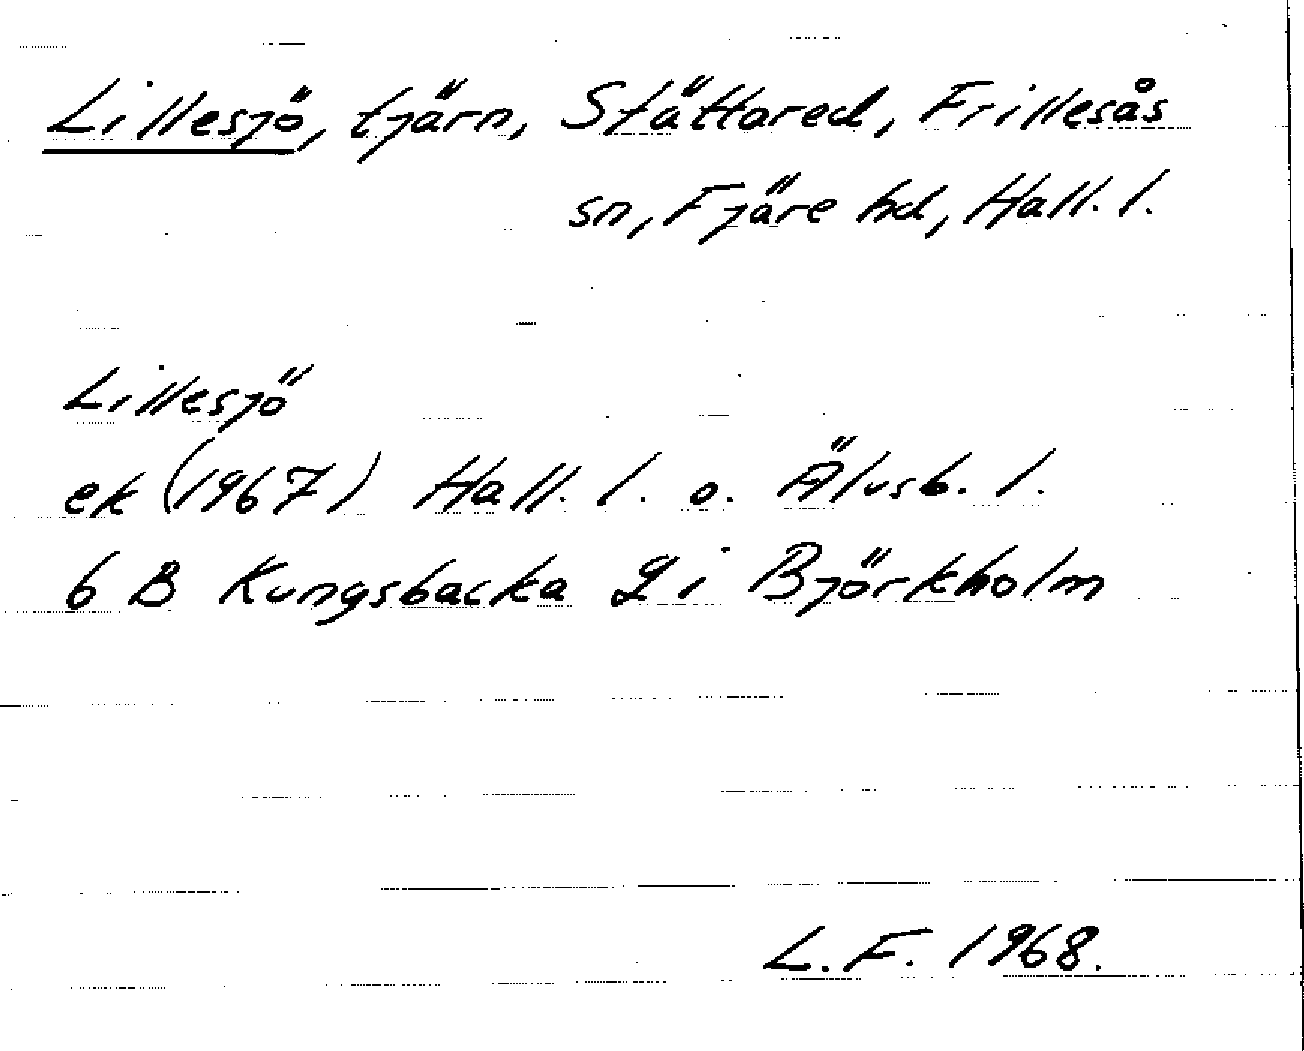 Lillesjö, tjärn, Stättared, Frillesås
sn, Fjäre hd, Hall. l.
Lillesjö
ek (1967) Hall. l. o. Älvsb. l.
6 B Kungsbacka 2 i Björkholm
L. F. 1968.